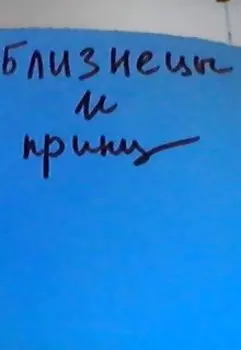 Близнецы
и
принц